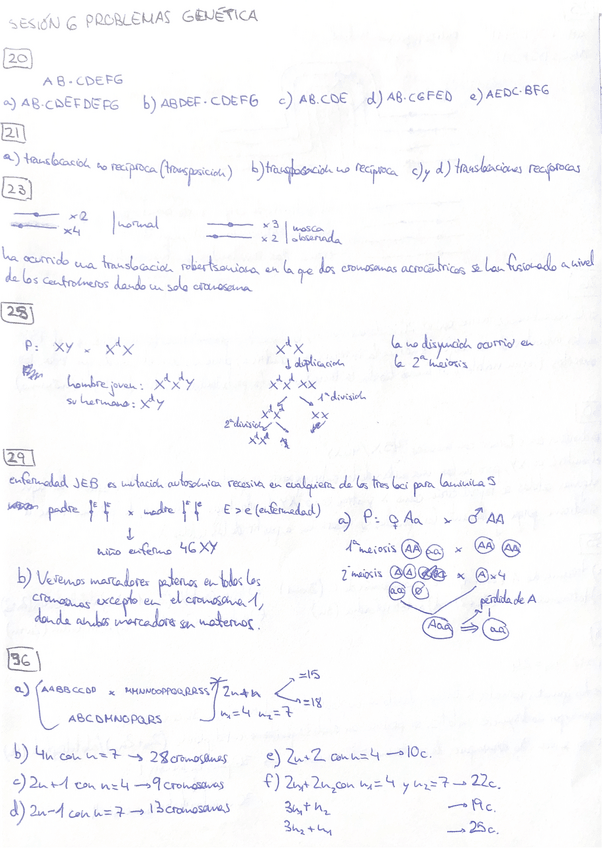 SESIÓN 6 PROBLEMAS GENÉTICA
20
AB·CDEFG
a) AB·CDEFDEFG b) ABDEF·CDEFG c) AB.CDE d) AB·CGFED e) AEDC·BFG
21
a) translocación no recíproca (transposición) b) transposición no recíproca c) y d) translocaciones recíprocas
23
x2
x4
normal
x3
x2
mosca
observada
ha ocurrido una translocación robertsoniana en la que dos cromosomas acrocéntricos se han fusionado a nivel
de los centrómeros dando un solo cromosoma
28
P: XY x XᵈX
hombre joven: XᵈXᵈY
su hermano: XᵈY
XᵈX
duplicación
XᵈXᵈ XX
1ª división
XᵈXᵈ XX
2ª división
XᵈXᵈ
la no disyunción ocurrió en
la 2ª meiosis
29
enfermedad JEB es mutación autosómica recesiva en cualquiera de los tres loci para laminina 5
padre E E x madre E e E > e (enfermedad)
niño enfermo 46XY
b) Veremos marcadores paternos en todos los
cromosomas excepto en el cromosoma 1,
donde ambos marcadores son maternos.
a) P: ♀ Aa x ♂ AA
1ª meiosis AA aa x AA AA
2ª meiosis A A x A x4
aa 0
pérdida de A
Aaa ⇒ aa
36
a) AABBCCDD x MMNNOOPPQQRRSS
ABCDMNOPQRS
2n+n
n₁=4 n₂=7
=15
=18
b) 4n con n=7 → 28 cromosomas
c) 2n+1 con n=4 → 9 cromosomas
d) 2n-1 con n=7 → 13 cromosomas
e) 2n+2 con n=4 → 10c.
f) 2n₁+2n₂ con n₁=4 y n₂=7 → 22c.
3n₁+n₂ → 19c.
3n₂+n₁ → 25c.